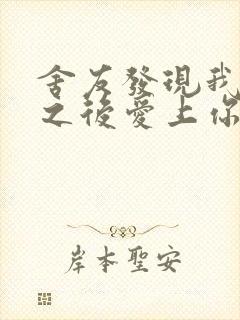 舍友發現我
之後愛上你
岸本聖安